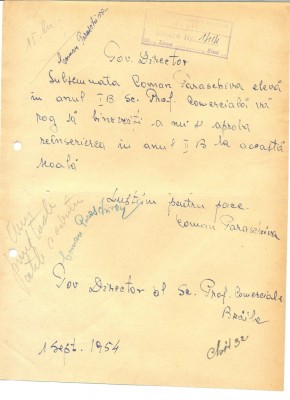 15 lei
Coman Paraschiva
Tov. Director
Subsemnata Coman Paraschiva elevă
în anul I B Sc. Prof. Comercială vă
rog să binevoiți a mi se aproba
reînscrierea în anul II B la această
școală
Luptăm pentru pace.
Coman Paraschiva
Coman Paraschiva
Tov Director al Sc. Prof. Comerciale
Brăila
1 Sept. 1954